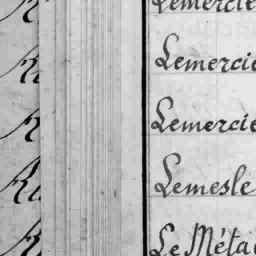 Lemercie
Lemercie
Lemercie
Lemesle
Le Méta